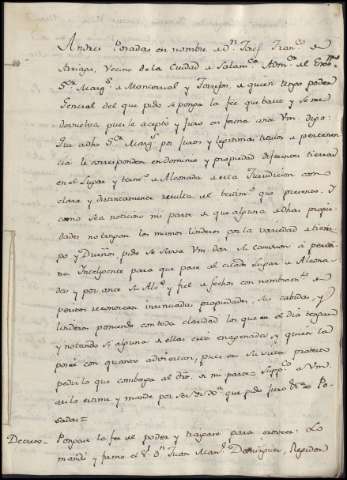 Andres Posadas en nombre de dn. Josef Franco. de
Arriaga, Vecino de la Ciudad de Salamca. Admor. del Exmo.
Sor. Marqs. de Monreal y , de quien tengo poder
General del que pido se ponga la fee que baste y se me
debuelva pues le acepto y juro en forma ante Vm. digo:
Que a dho Sor. Marqs. por justos y legitimos titulos de pertenen
cia le corresponden en dominio y propiedad diferentes tierras
en el Lugar y termo. de de esta Jurisdicion como
clara y distintamente resulta del testimo. que presento. Y
como sea noticioso mi parte de que algunas de dhas propie
dades no tengan los mismos linderos por la variedad de tiem
po y Dueños pido se sirva Vm. dar su comision a perso
na Inteligente para que pase al citado Lugar de
das y por ante su Alce. y fiel de fechos con nombramto. de
peritos reconozcan inicuadas propiedades, sus cabidas, y
linderos poniendo con toda claridad los que en el dia tengan
y notando si alguna de ellas esta enagenada, y quien la
posee con quanto adviertan, pues en su vista protesto
pedir lo que combenga al dro. de mi parte: Suppco. a Vm.
asi lo estime y mande por ser de Jusa. que pido juro &a. Po
sadas=
Decreto. Pongase la fee del poder y traigase para proveer. Lo
mandó y firmo el Sr. Dn. Juan Manl. Dominguez, Regidor